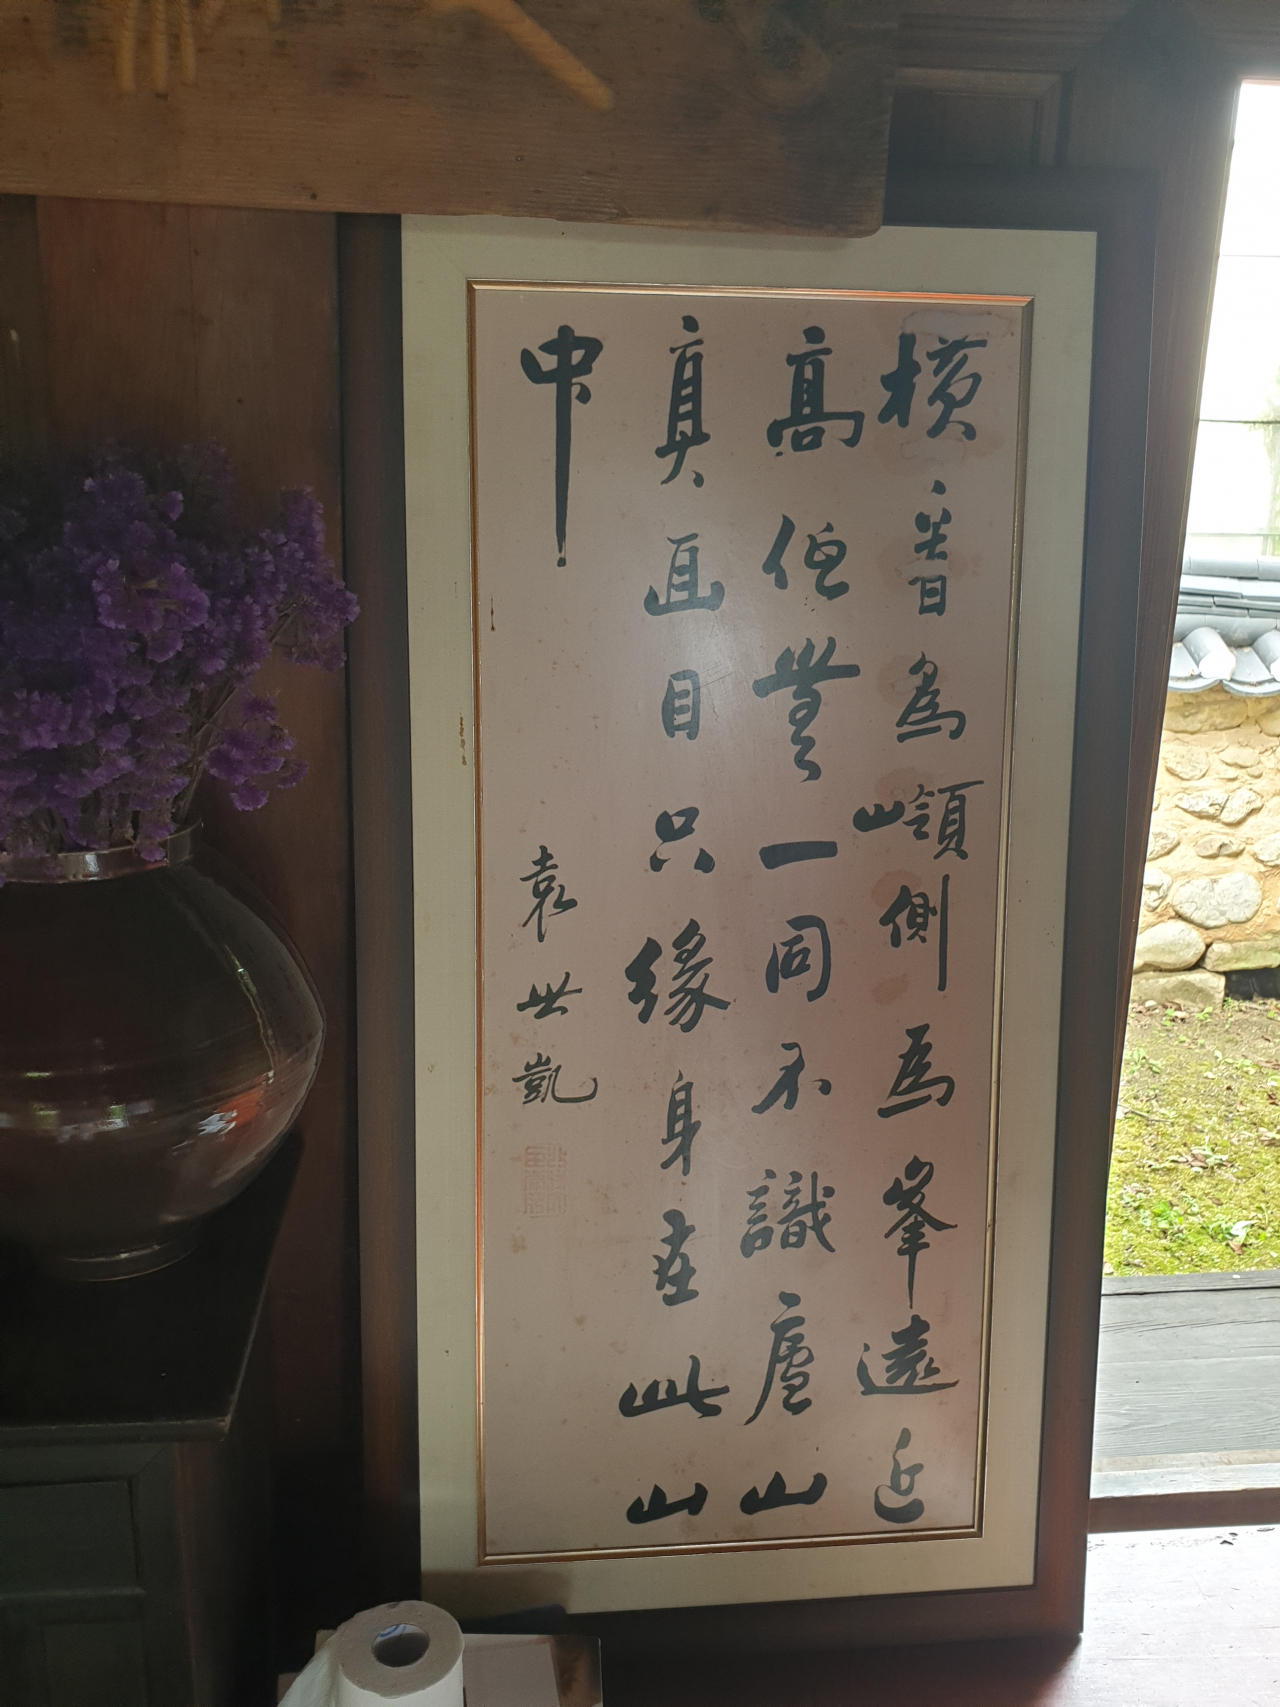 橫看為嶺側為峯遠近
高低無一同不識廬山
真面目只緣身在此山
中
袁世凱